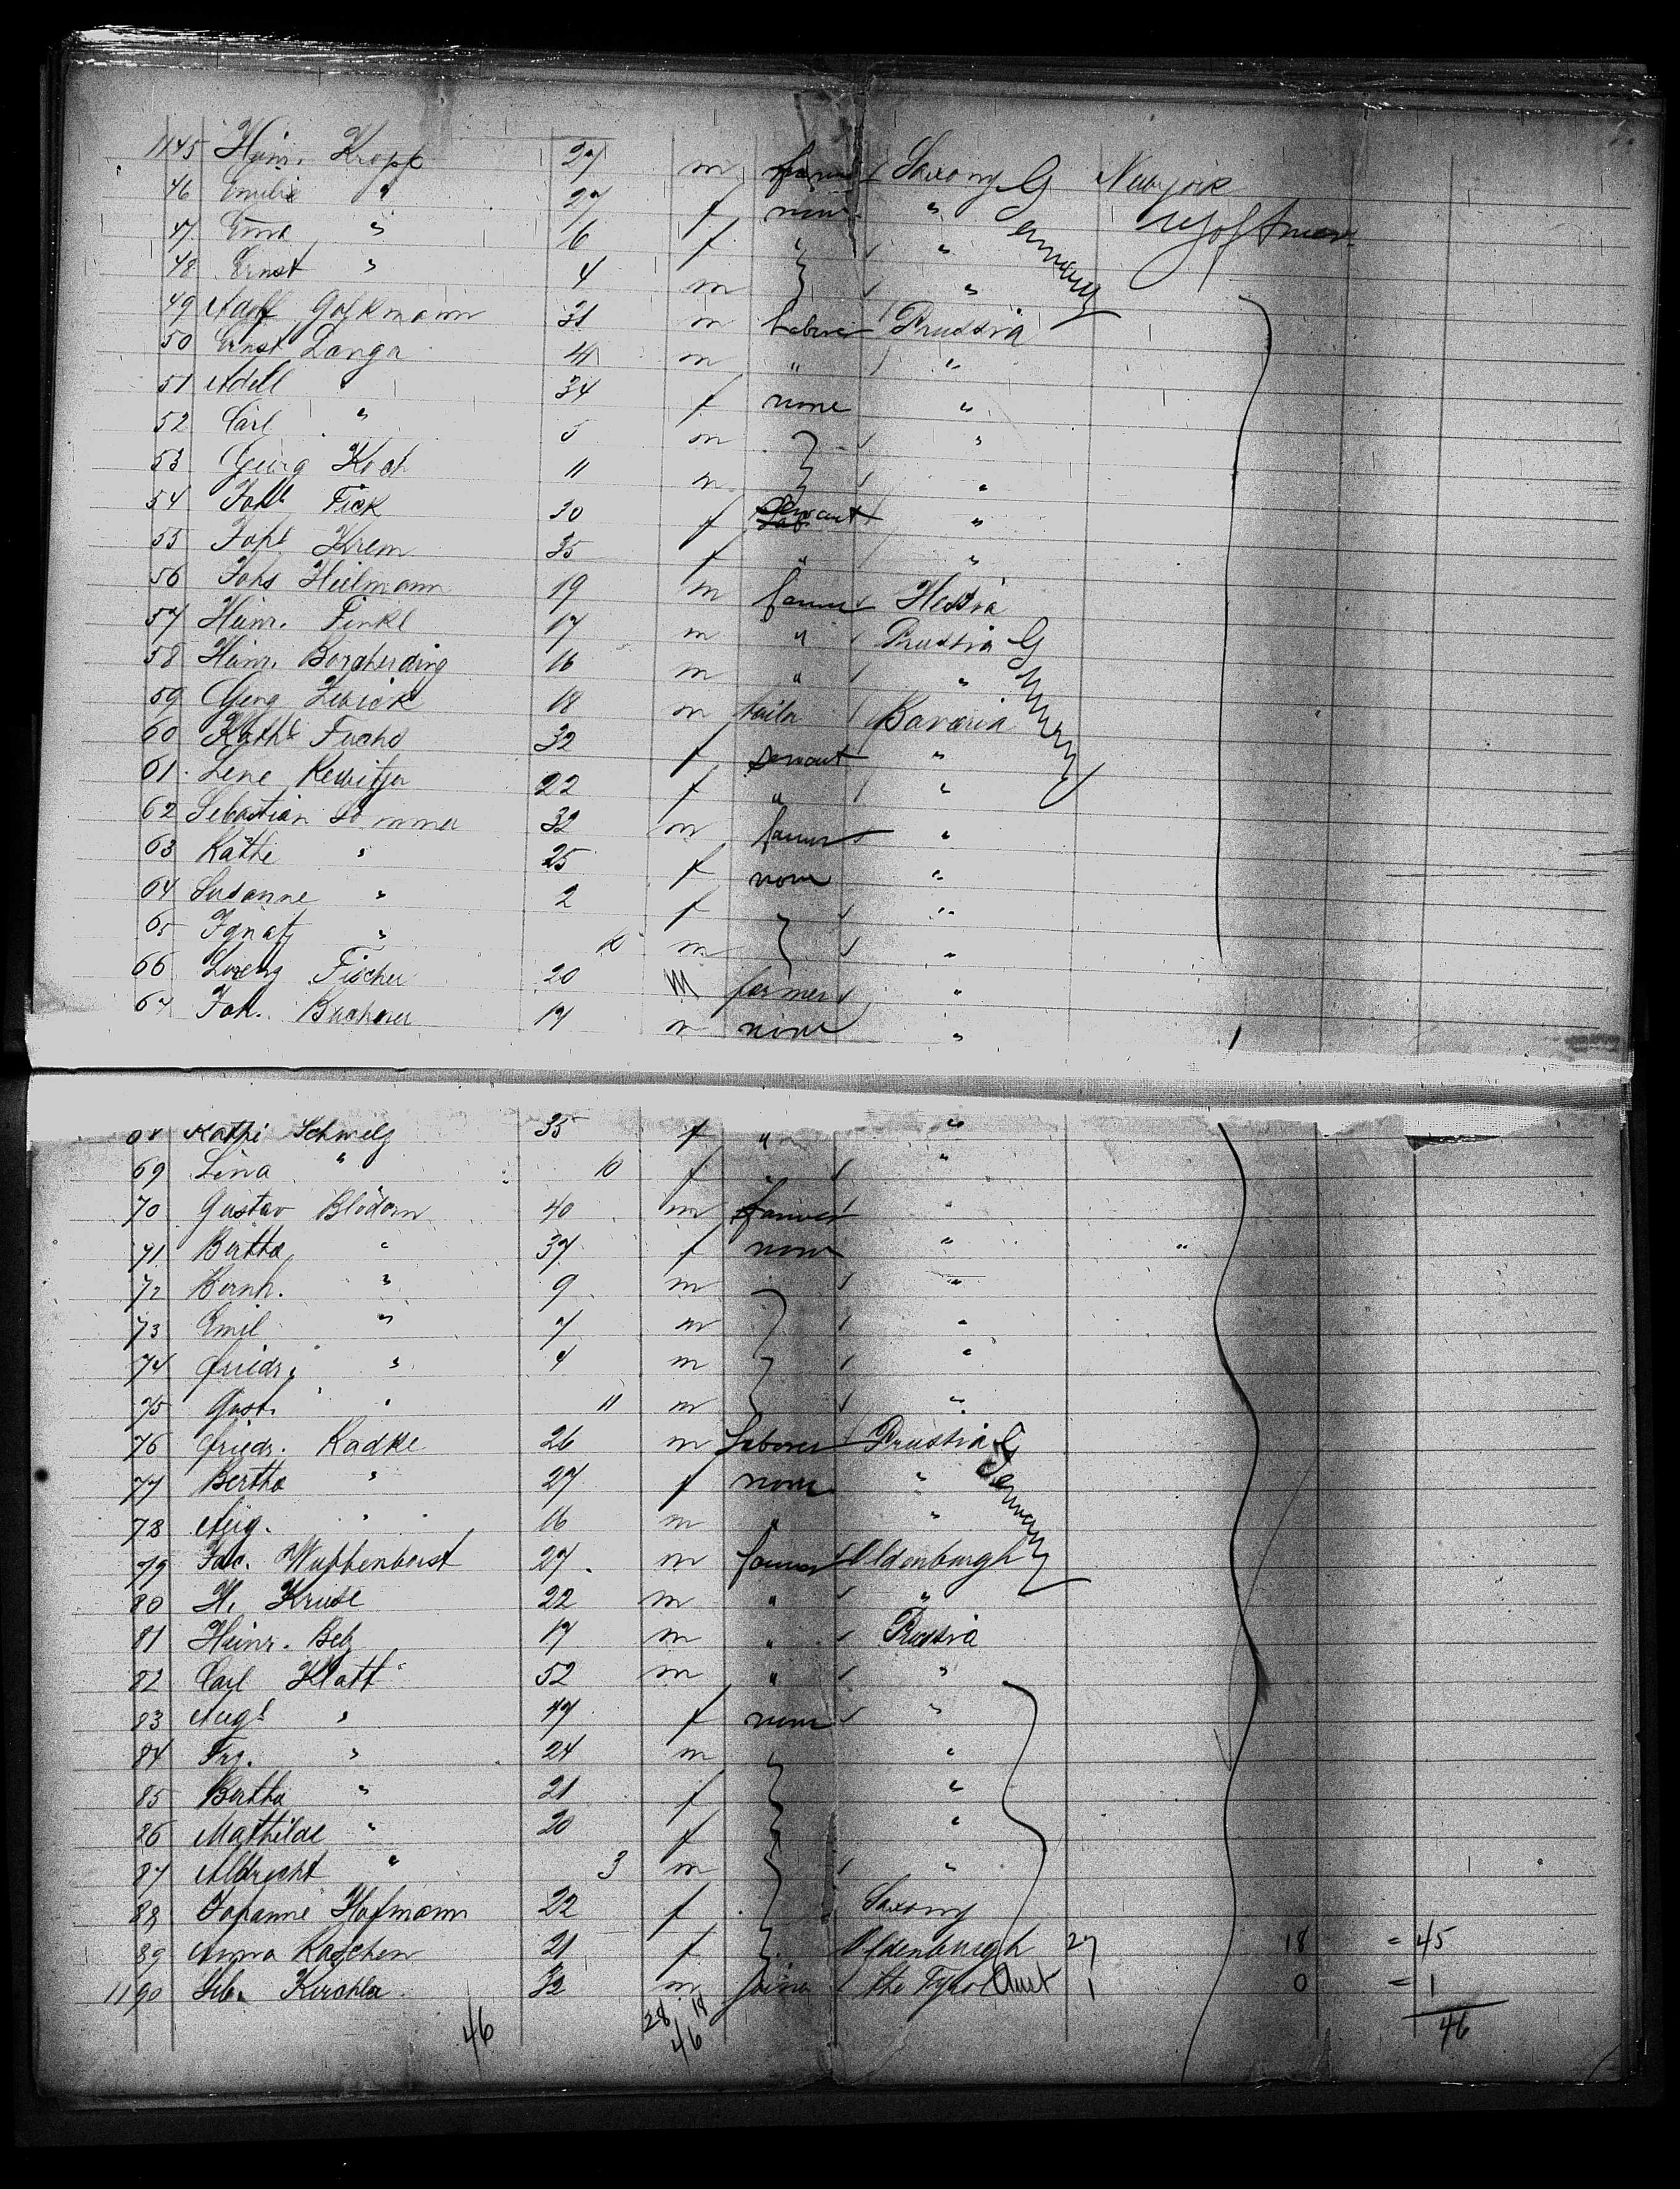 1145 Heinr. Kropp 27 m farmer Saxony Germany Newyork
46 Emilie " 27 f none " U S of America
47 Ema " 6 f " "
48 Ernst " 4 m "
49 Adolf 31 m laborer Prussia
50 Ernst Langer 41 m " "
51 Adell " 34 f none "
52 Carl " 5 m "
53 Georg Koch 11 m "
54 Joh. Fick 30 f servant "
55 Joh. Krem 35 f " "
56 Johs Heilmann 19 m farmer Hessia
57 Heinr. Finkl 17 m " Prussia Germany
58 Heinr. Borcherding 16 m " "
59 Georg 18 m tailor Bavaria
60 Kath. Fuchs 32 f servant "
61 Lene 22 f " "
62 Sebastian Sommer 32 m farmer "
63 Käthi " 25 f none "
64 Susanne " 2 f "
65 Ignatz " 10 m "
66 Lorenz Fischer 20 m farmer "
67 Joh. Bucherer 17 m none "
68 Kathi Schmelz 35 f " "
69 Lina " 10 f " "
70 Gustav Blödorn 40 m farmer "
71 Bertha " 37 f none " "
72 Bernh. " 9 m "
73 Emil " 7 m "
74 Friedr. " 4 m "
75 Gust. " 11 m "
76 Friedr. Radke 26 m laborer Prussia Germany
77 Bertha " 27 f none "
78 Aug. " 16 m " "
79 Jac. Wubbenhorst 27 m farmer Oldenburgh
80 H. Kruse 22 m " "
81 Heinr. Belz 17 m " Prussia
82 Carl Klatt 52 m " "
83 Augt " 47 f none "
84 Frz. " 24 m "
85 Bertha " 21 f "
86 Mathilde " 20 f "
87 Albrecht " 3 m "
88 Johanne Hofmann 22 f Saxony
89 Anna Raschen 21 f Oldenburgh 27 18 = 45
1190 Seb. Kirchler 32 m joiner the Tyrol Aust 1 0 = 1
46 28 18 46
46